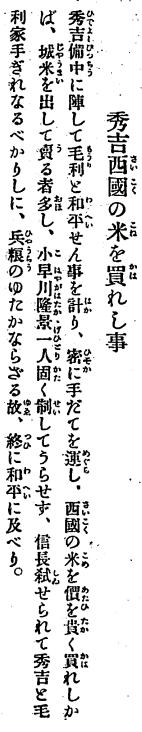 秀吉西國の米を買れし事
秀吉備中に陣して毛利と和平せん事を計り、密に手だてを運し、西國の米を價を貴く買れしか
ば、城米を出して賣る者多し、小早川隆景一人固く制してうらせず、信長弑せられて秀吉と毛
利家手ぎれなるべかりしに、兵粮のゆたかならざる故、終に和平に及べり。